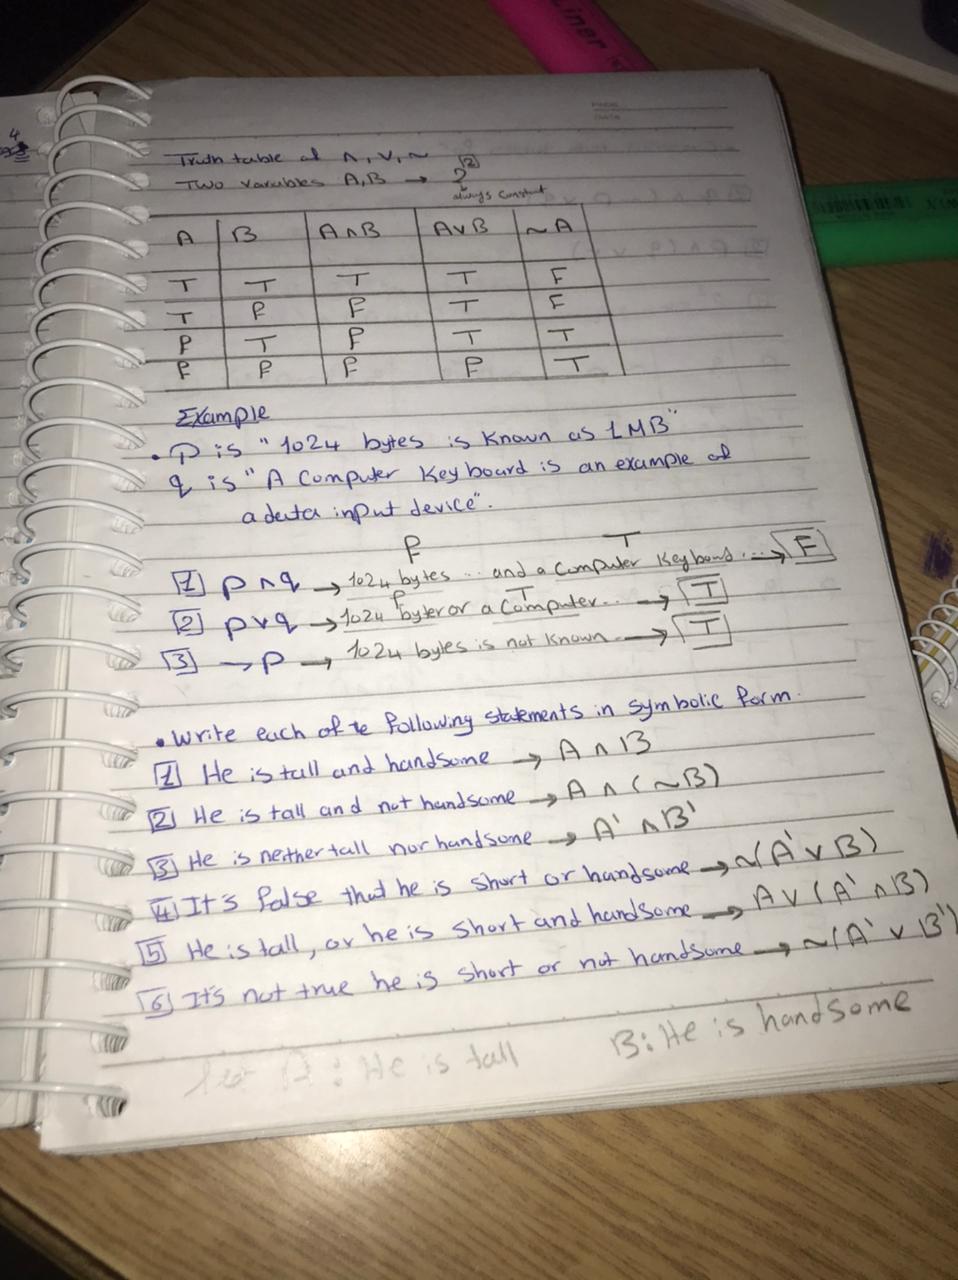 4
Liner
Truth table of ∧, ∨, ~
Two variables A,B → 2^2
always constant
A B A∧B A∨B ~A
T T T T F
T F F T F
F T F T T
F F F F T
Example
• P is "1024 bytes is known as 1MB"
q is "A Computer Keyboard is an example of
a data input device".
F T
1 P ∧ q → 1024 bytes ... and a Computer Keyboard ... → F
F T
2 P ∨ q → 1024 byter or a Computer... → T
3 → P → 1024 bytes is not known → T
• Write each of te following statements in symbolic form.
1 He is tall and handsome → A ∧ B
2 He is tall and not handsome → A ∧ (~B)
3 He is neither tall nor handsome → A' ∧ B'
4 It's false that he is short or handsome → ~(A' ∨ B)
5 He is tall, or he is short and handsome → A ∨ (A' ∧ B)
6 It's not true he is short or not handsome → ~(A' ∨ B')
let A : He is tall B: He is handsome